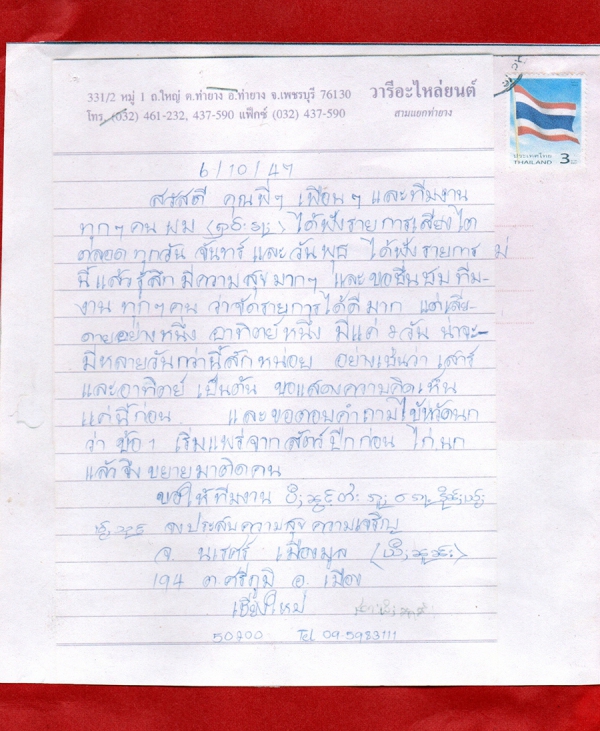 331/2 หมู่ 1 ถ.ใหญ่ ต.ท่ายาง อ.ท่ายาง จ.เพชรบุรี 76130
วารีอะไหล่ยนต์
โทร. (032) 461-232, 437-590 แฟ็กซ์ (032) 437-590
สามแยกท่ายาง
ประเทศไทย
THAILAND 3
6/10/47
สวัสดี คุณพี่ๆ เพื่อนๆ และทีมงาน
ทุกๆคน ผม ได้ฟังรายการเสียงไต
ตลอดทุกวัน จันทร์ และวันพุธ ได้ฟังรายการ
นี้แล้วรู้สึก มีความสุขมากๆ และขอชื่นชม ทีม-
งาน ทุกๆคน ว่าจัดรายการได้ดีมาก แต่เสีย-
ดายอย่างหนึ่ง อาทิตย์หนึ่ง มีแค่ 2 วัน น่าจะ-
มีหลายวันกว่านี้สักหน่อย อย่างเช่นว่า เสาร์
และอาทิตย์ เป็นต้น ขอแสดงความคิดเห็น
แค่นี้ก่อน และขอตอบคำถามไข้หวัดนก
ว่า ข้อ 1 เริ่มแพร่จากสัตว์ปีกก่อน ไก่.นก
แล้วจึงขยายมาติดคน
ขอให้ทีมงาน
จงประสบความสุข ความเจริญ
จ. นเรศร์ เมืองมูล
194 ต.ศรีภูมิ อ. เมือง
เชียงใหม่
50200 Tel 09-5983111